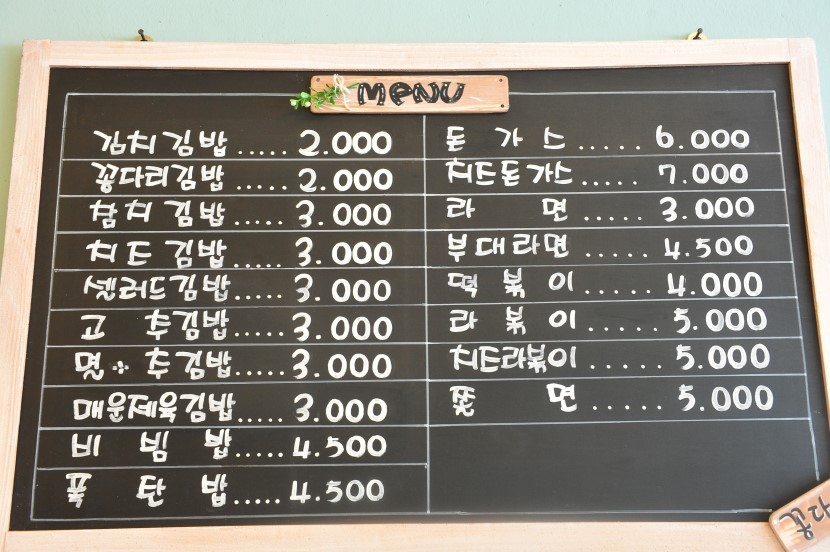 MENU
김치김밥.....2.000
꽁다리김밥.....2.000
참치김밥.....3.000
치즈김밥.....3.000
샐러드김밥.....3.000
고추김밥.....3.000
멸추김밥.....3.000
매운제육김밥.....3.000
비빔밥.....4.500
폭탄밥.....4.500
돈가스.....6.000
치즈돈가스.....7.000
라면.....3.000
부대라면.....4.500
떡볶이.....4.000
라볶이......5.000
치즈라볶이.....5.000
쫄면.....5.000